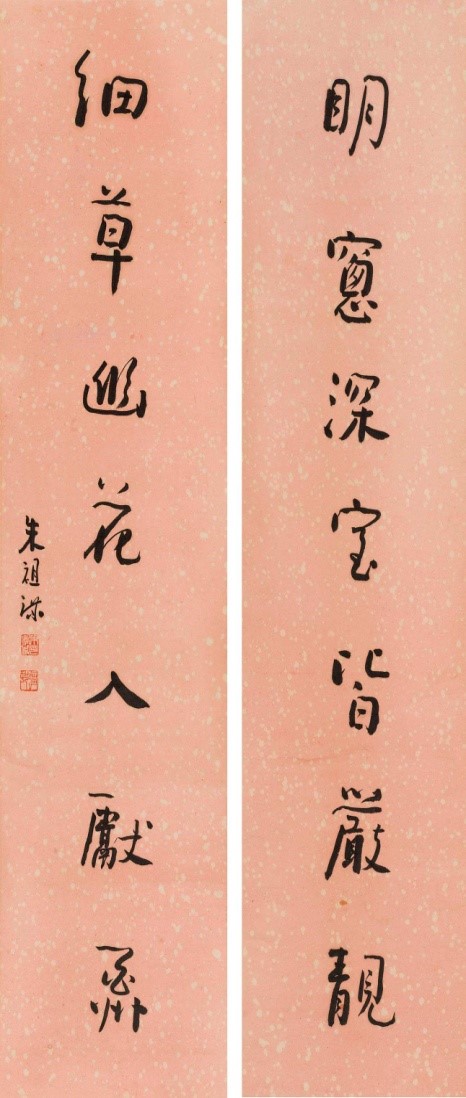 明窻深室皆嚴靚
細草幽花入獻酬
朱祖謀